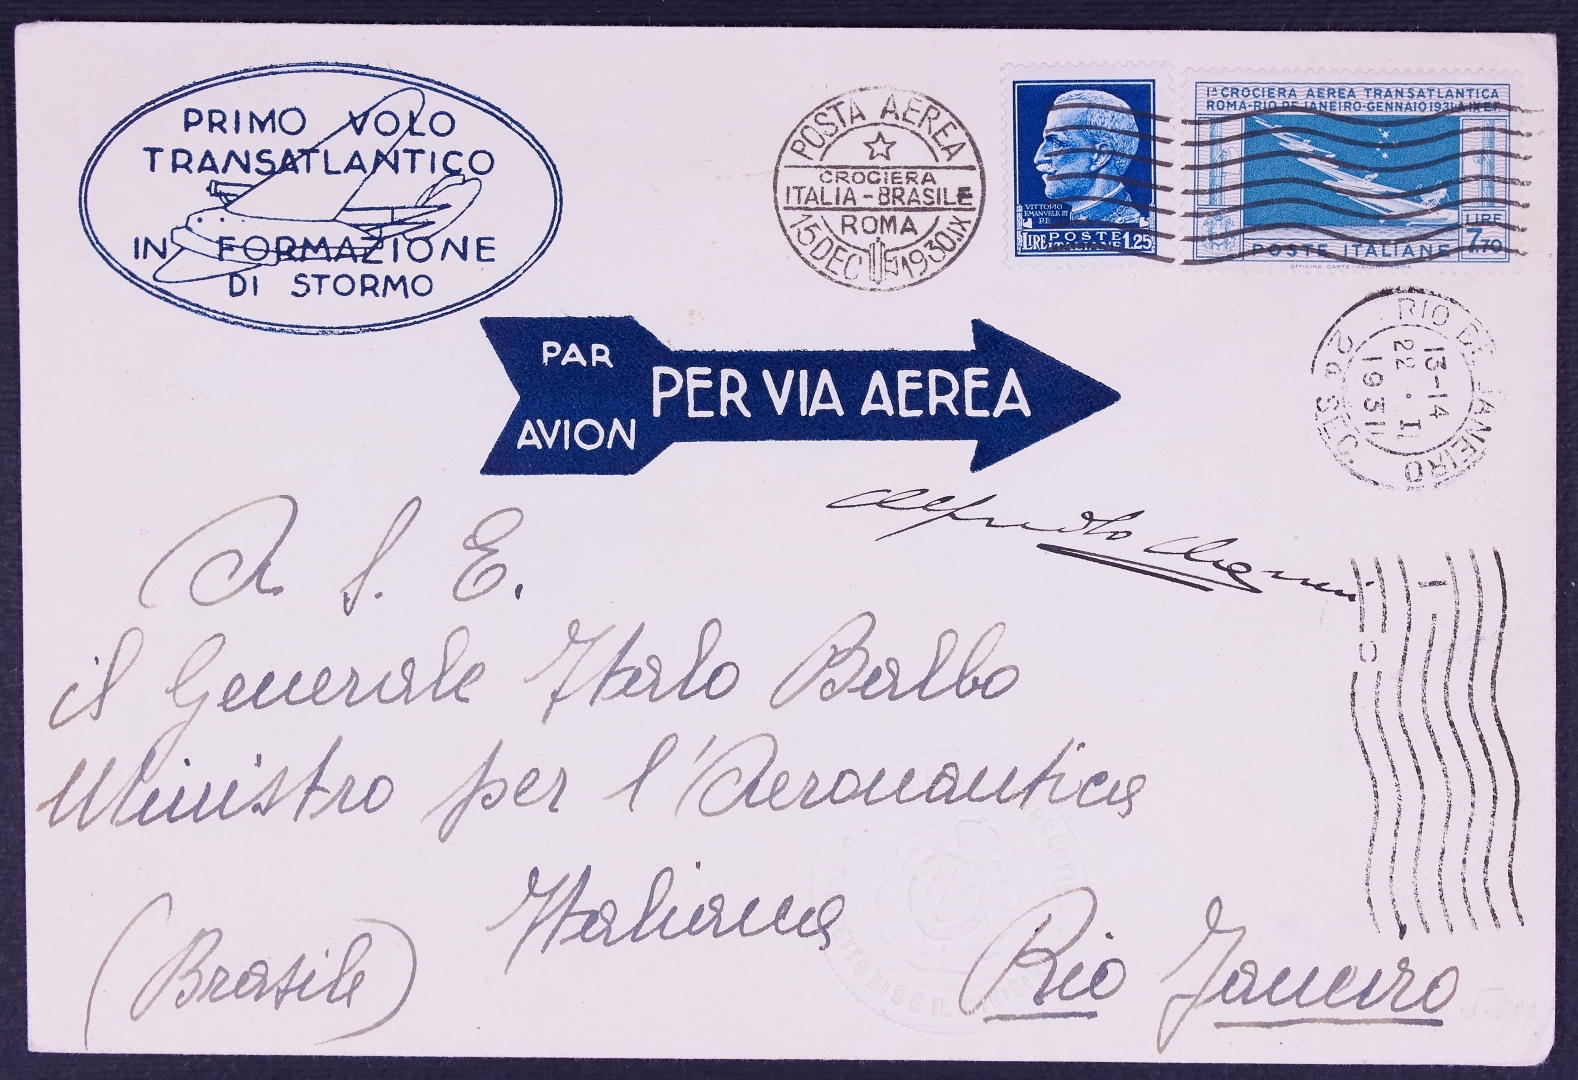 PRIMO VOLO
TRANSATLANTICO
IN FORMAZIONE
DI STORMO
POSTA AEREA
CROCIERA
ITALIA-BRASILE
ROMA
15 DEC 1930.IX
VITTORIO
EMANUELE III
RE
POSTE
LIRE ITALIANE 1.25
Iª CROCIERA AEREA TRANSATLANTICA
ROMA-RIO DE JANEIRO-GENNAIO 1931.A.IX E.F.
LIRE
7.70
POSTE ITALIANE
OFFICINA CARTE-VALORI ROMA
RIO DE JANEIRO
13-14
22.I
1931
2ª SEC
PAR
AVION
PER VIA AEREA
Alfredo
A S. E.
il Generale Italo Balbo
Ministro per l'Aeronautica
Italiana
(Brasile)
Rio Janeiro